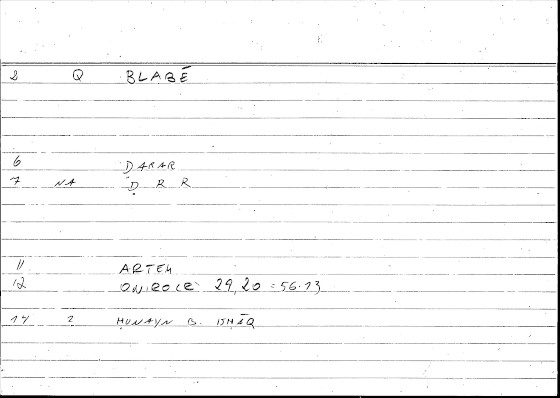 2 Q BLABĒ
6 DARAR
7 NA Ḍ R R
11 ARTEM
12 ONIROCR 29,20 = 56.13
14 2 ḤUNAYN B. ISḤĀQ